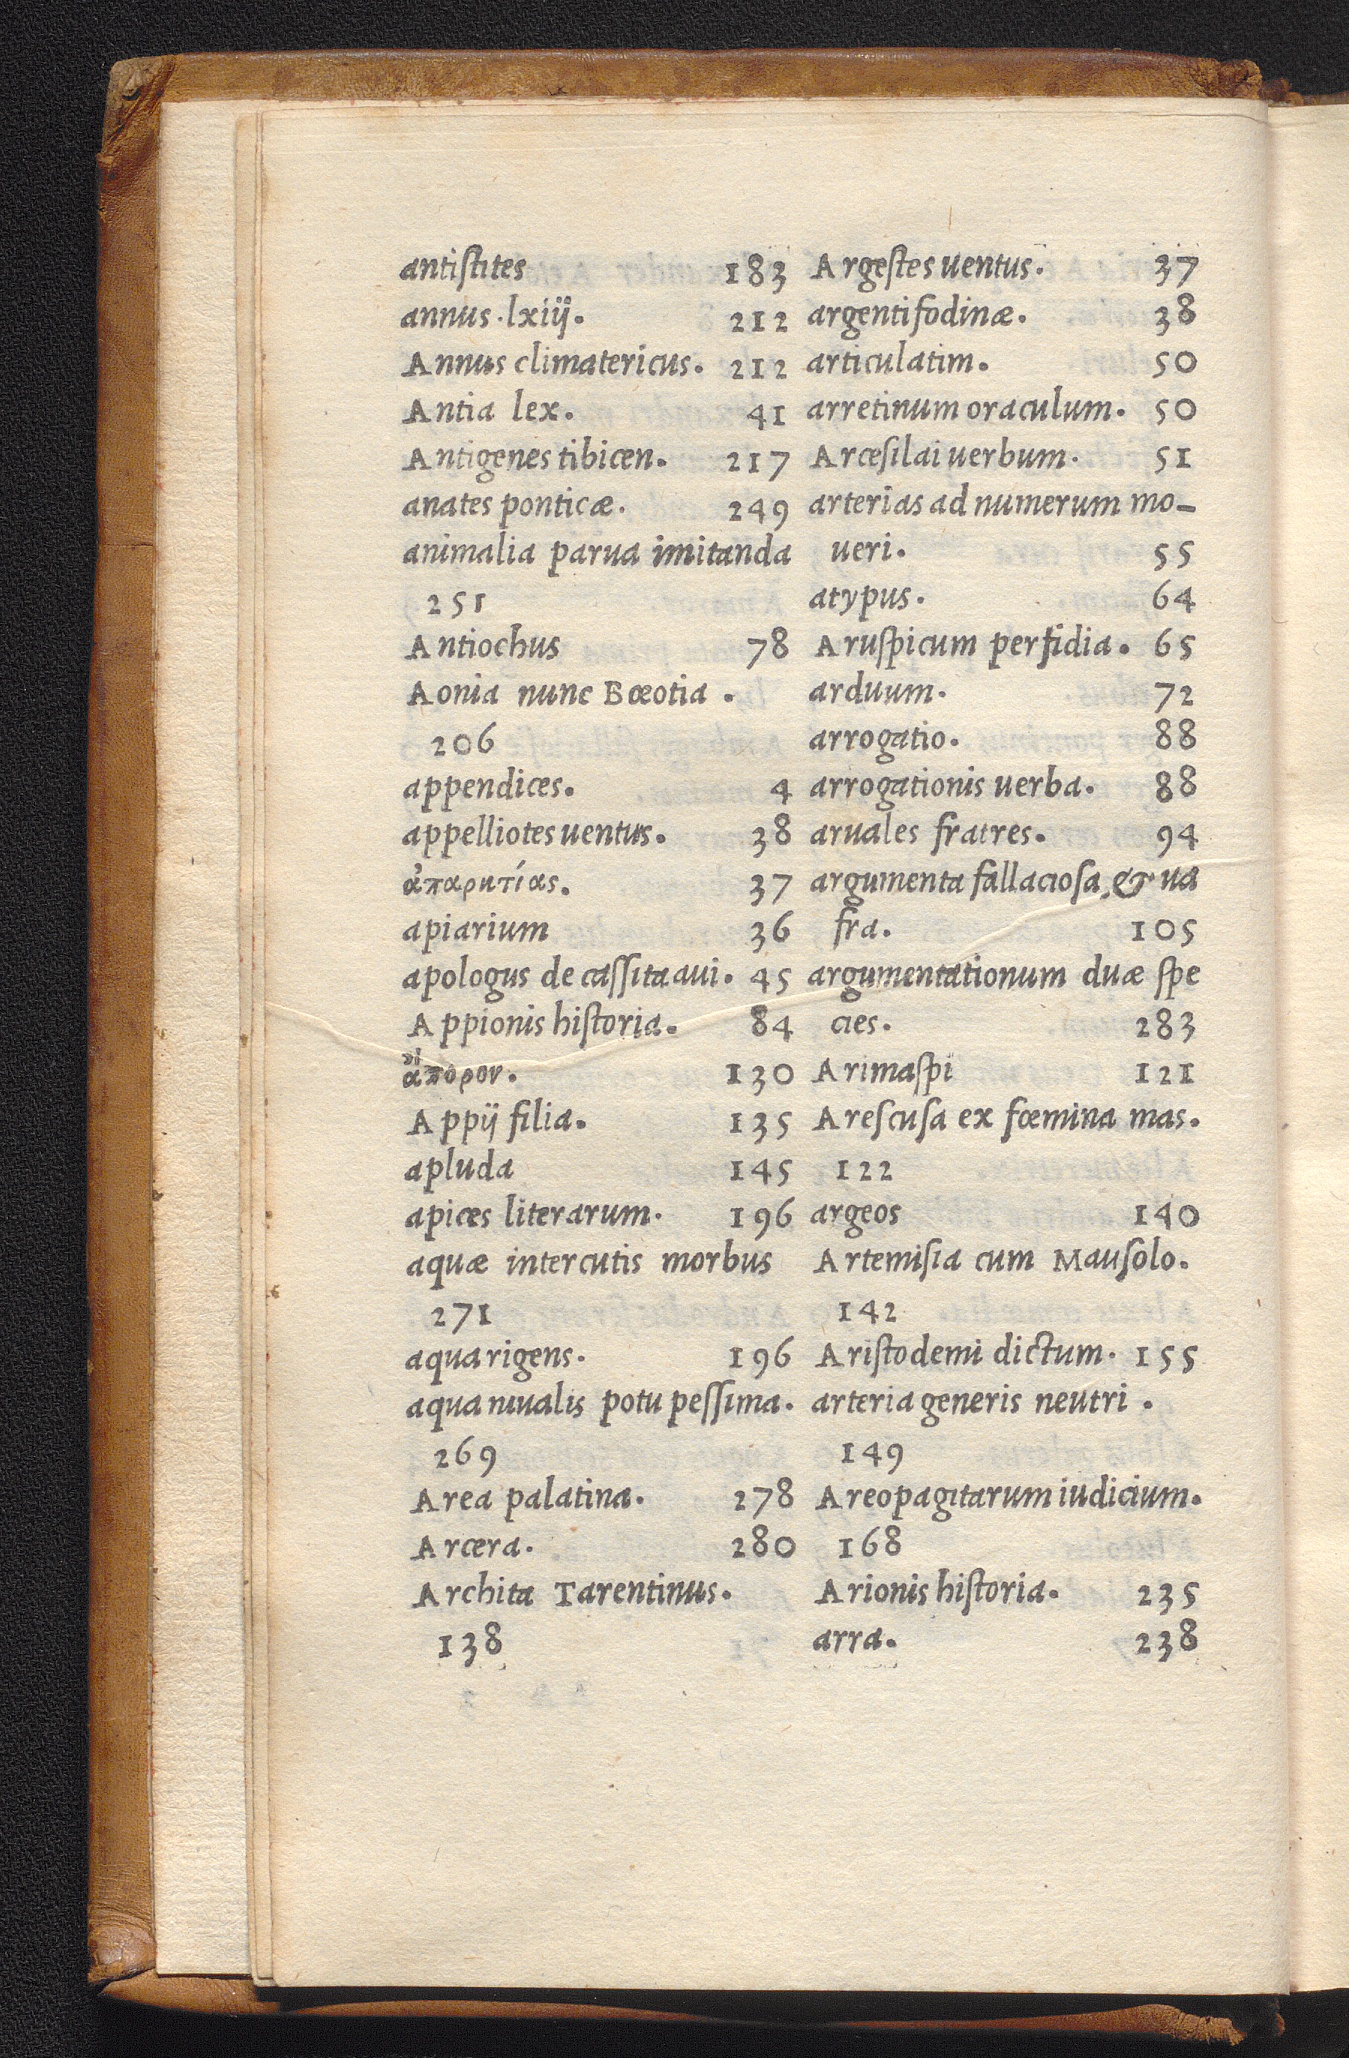 antistites 183
annus .lxiij. 212
Annus climatericus. 212
Antia lex. 41
Antigenes tibicen. 217
anates ponticæ. 249
animalia parua imitanda
251
Antiochus 78
Aonia nunc Bœotia .
206
appendices. 4
appelliotes uentus. 38
ἀπαρητίας. 37
apiarium 36
apologus de cassita aui. 45
Appionis historia. 84
ἄπορον. 130
Appij filia. 135
apluda 145
apices literarum. 196
aquæ intercutis morbus
271
aquarigens. 196
aqua niualis potu pessima.
269
Area palatina. 278
Arcera. 280
Archita Tarentinus.
138
Argestes uentus. 37
argentifodinæ. 38
articulatim. 50
arretinum oraculum. 50
Arcesilai uerbum. 51
arterias ad numerum mo-
ueri. 55
atypus. 64
Aruspicum perfidia. 65
arduum. 72
arrogatio. 88
arrogationis uerba. 88
aruales fratres. 94
argumenta fallaciosa, & ua
fra. 105
argumentationum duæ spe
cies. 283
Arimaspi 121
Arescusa ex fœmina mas.
122
argeos 140
Artemisia cum Mausolo.
142
Aristodemi dictum. 155
arteria generis neutri .
149
Areopagitarum iudicium.
168
Arionis historia. 235
arra. 238